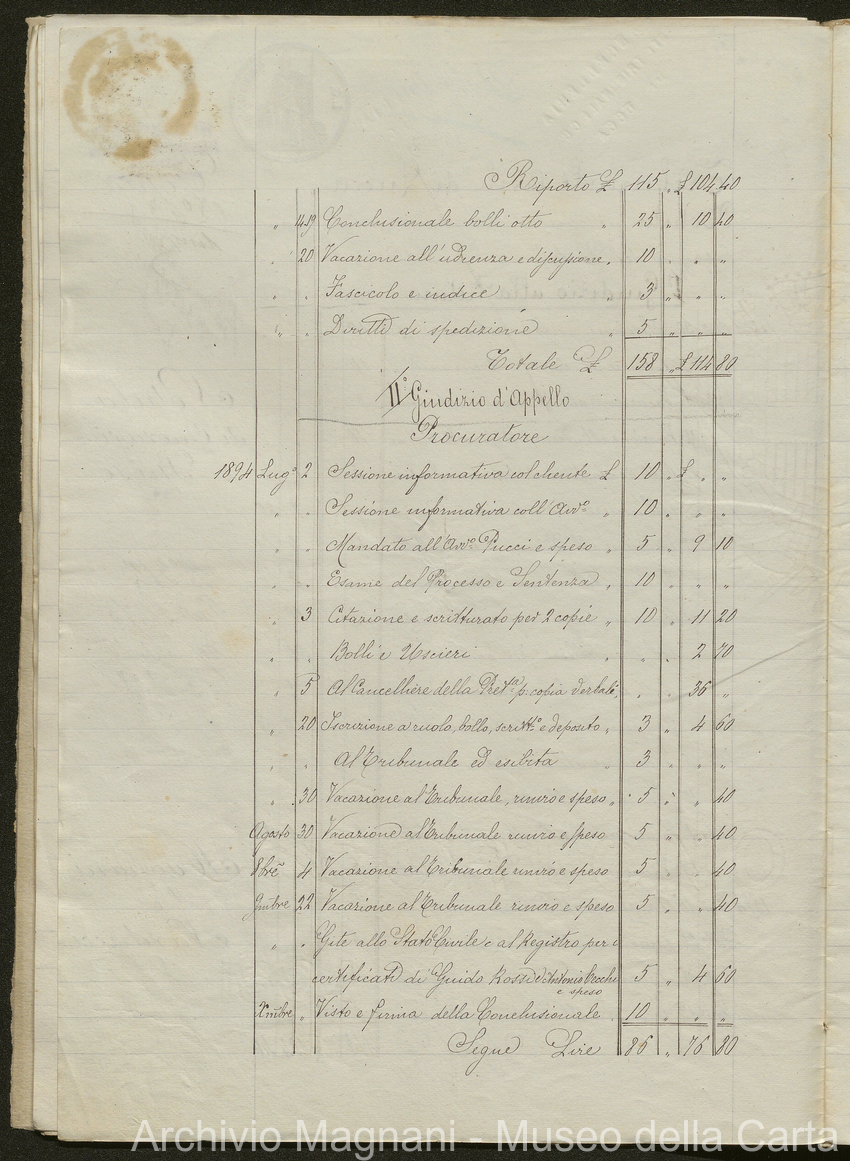 Riporto £ 115 „ £ 104 40
„ 14-19 Conclusionale bolli otto „ 25 „ 10 40
„ 20 Vacazione all'udienza e discussione „ 10 „ „ „
„ „ Fascicolo e indice „ 3 „ „ „
„ „ Diritti di spedizione „ 5 „ „ „
Totale £ 158 „ £ 114 80
II° Giudizio d'Appello
Procuratore
1894 Lug° 2 Sessione informativa col cliente £ 10 „ £ „ „
„ „ Sessione informativa coll'Avv° „ 10 „ „ „
„ „ Mandato all'Avv° Pucci e spese „ 5 „ 9 10
„ „ Esame del Processo e Sentenza „ 10 „ „ „
„ 3 Citazione e scritturato per 2 copie „ 10 „ 11 20
„ „ Bolli e Uscieri „ „ „ 2 70
„ 5 Al Cancelliere della Pret.a p. copia verbali „ „ „ 36 „
„ 20 Iscrizione a ruolo, bollo, scritt° e deposito „ 3 „ 4 60
„ „ Al Tribunale ed esibita „ 3 „ „ „
„ 30 Vacazione al Tribunale, rinvio e spese „ 5 „ „ 40
Agosto 30 Vacazione al Tribunale rinvio e spese 5 „ „ 40
8bre 4 Vacazione al Tribunale rinvio e spese 5 „ „ 40
9mbre 22 Vacazione al Tribunale rinvio e spese 5 „ „ 40
„ „ Gite allo Stato Civile e al Registro per i
certificati di Guido Rossi d'Antonio Cecchi 5 „ 4 60
e spese
Xmbre „ Visto e firma della Conclusionale . 10 „ „ „
Segue Lire 86 „ 76 80
Archivio Magnani - Museo della Carta